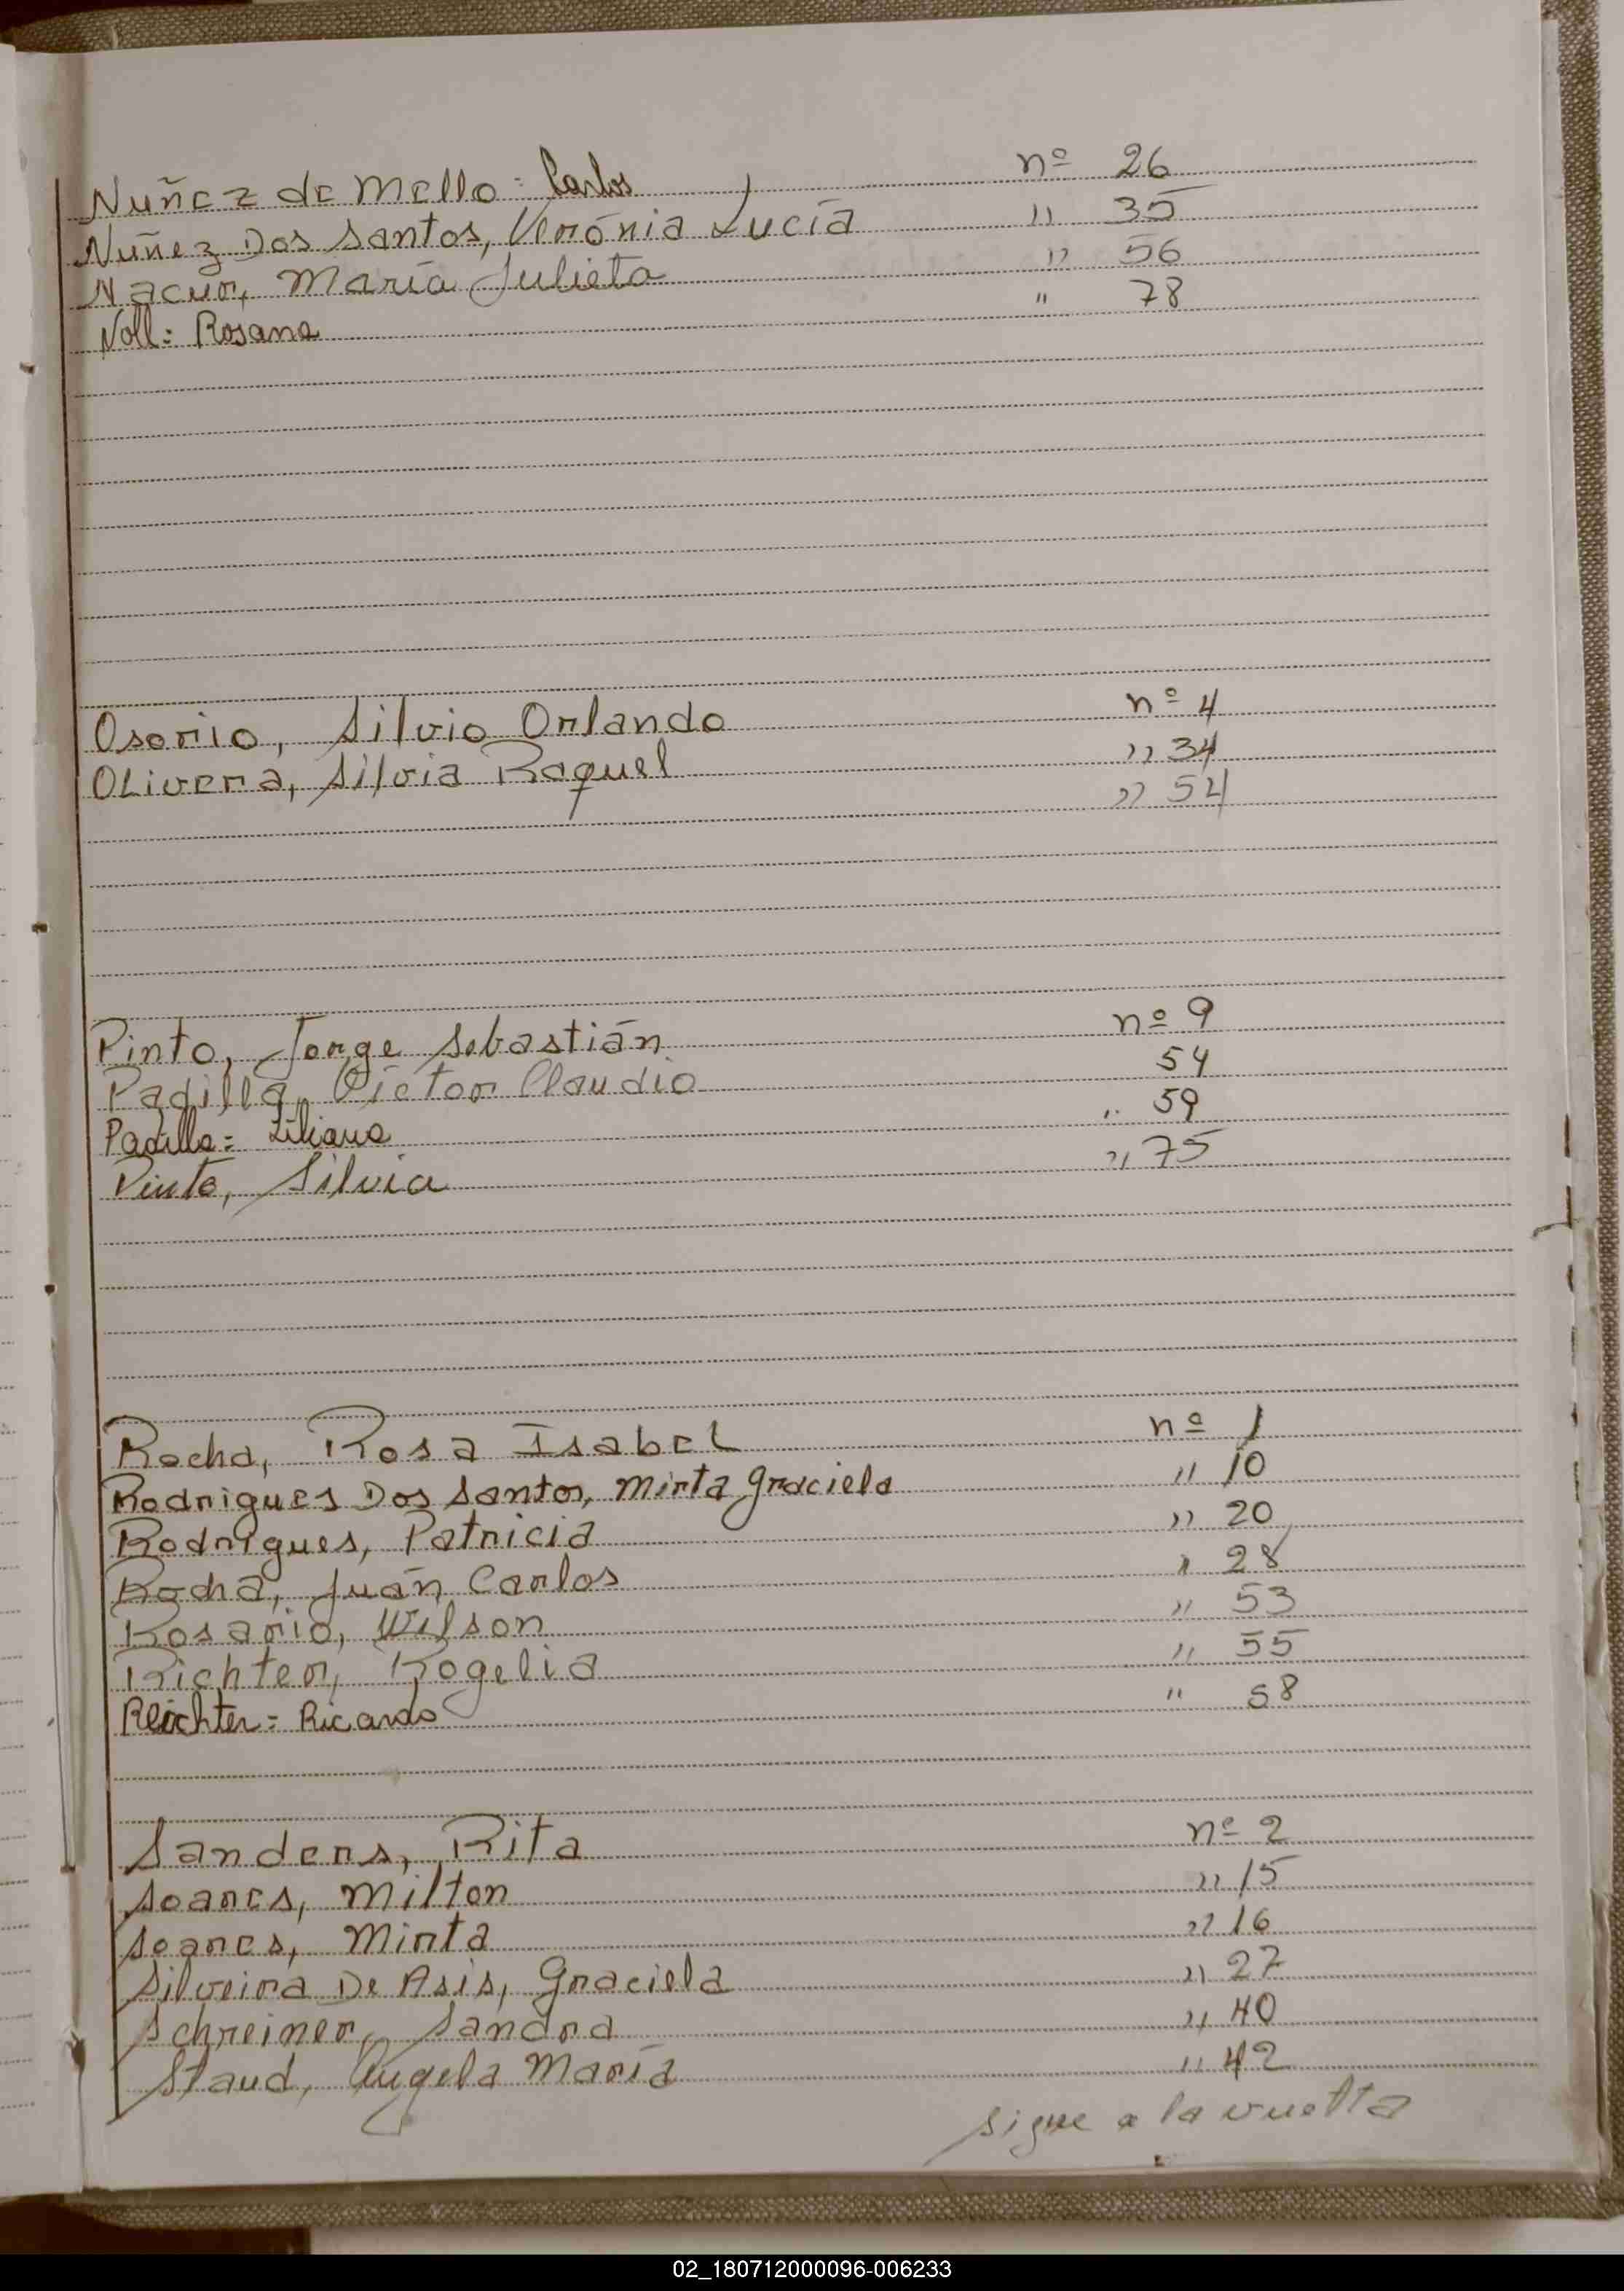 Nuñez de Mello: Carlos nº 26
Nuñez Dos Santos, Verónia Lucía " 35
Nacur, María Julieta " 56
Noll: Rosana " 78
Osorio, Silvio Orlando nº 4
Olivera, Silvia Raquel " 34
" 54
Pinto, Jorge Sebastián nº 9
Padilla, Víctor Claudio 54
Padilla= Liliana " 59
Pinto, Silvia " 75
Rocha, Rosa Isabel nº 1
Rodrigues Dos Santos, Mirta Graciela " 10
Rodrigues, Patricia " 20
Rocha, Juán Carlos " 28
Rosario, Wilson " 53
Richter, Rogelia " 55
Reichter= Ricardo " 58
Sanders, Rita nº 2
Soares, Milton " 15
Soares, Mirta " 16
Silveira De Asis, Graciela " 27
Schreiner, Sandra " 40
Staud, Angela María " 42
sigue a la vuelta
02_180712000096-006233